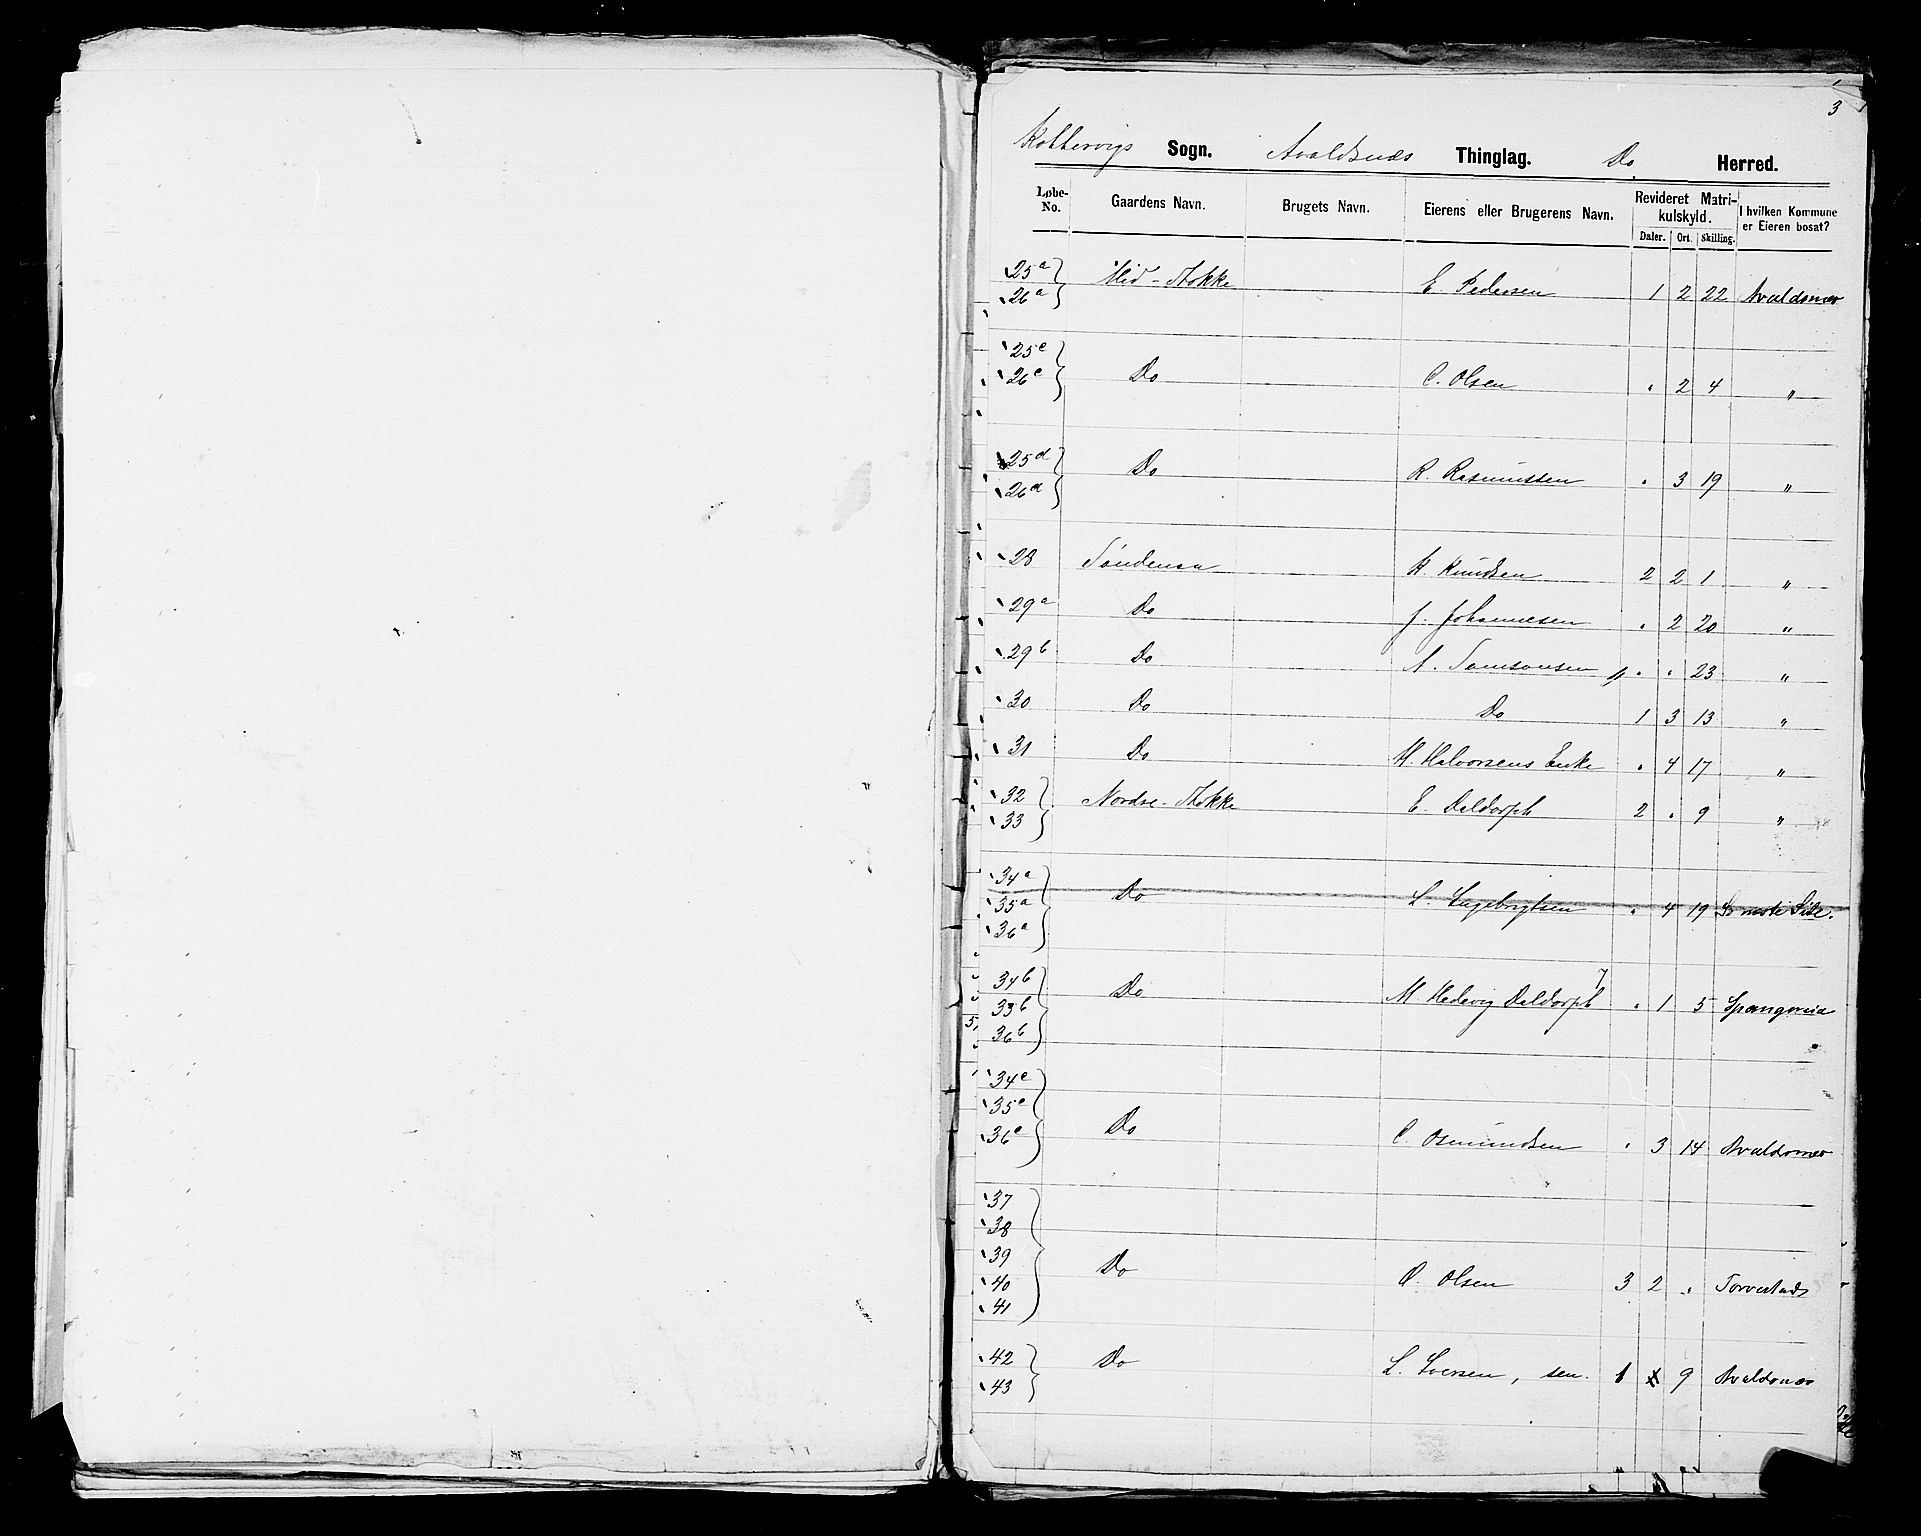 3
Kobbervigs Sogn. Avaldsnæs Thinglag. Do Herred.
Løbe-No. Gaardens Navn. Brugets Navn. Eierens eller Brugerens Navn. Revideret Matrikulskyld. Daler. Ort. Skilling. I hvilken Kommune er Eieren bosat?
25a
26a Mid-Stokke E. Pedersen 1 2 22 Avaldsnæs
25c
26c Do C. Olsen " 2 4 "
25d
26d Do R. Rasmussen " 3 19 "
28 Søndenaa K Knudsen 2 2 1 "
29a Do J. Johannesen " 2 20 "
29b Do A. Samsonsen " " 23 "
30 Do Do 1 3 13 "
31 Do H. Halvorsens Enke " 4 17 "
32
33 Nordre-Stokke E. Daldorph 2 " 9 "
34a
35a Do L. Ingebrigtsen " 4 19 Se næste Side.
36a
34b
33b Do M Hedevig Daldorph " 1 5 Spangereid
36b
34c
35c
36c Do C. Osmundsen " 3 14 Avaldsnæs
37
38
39
40 Do O. Olsen 3 2 " Torvestads
41
42
43 Do L. Iversen, sen. 1 9 Avaldsnæs